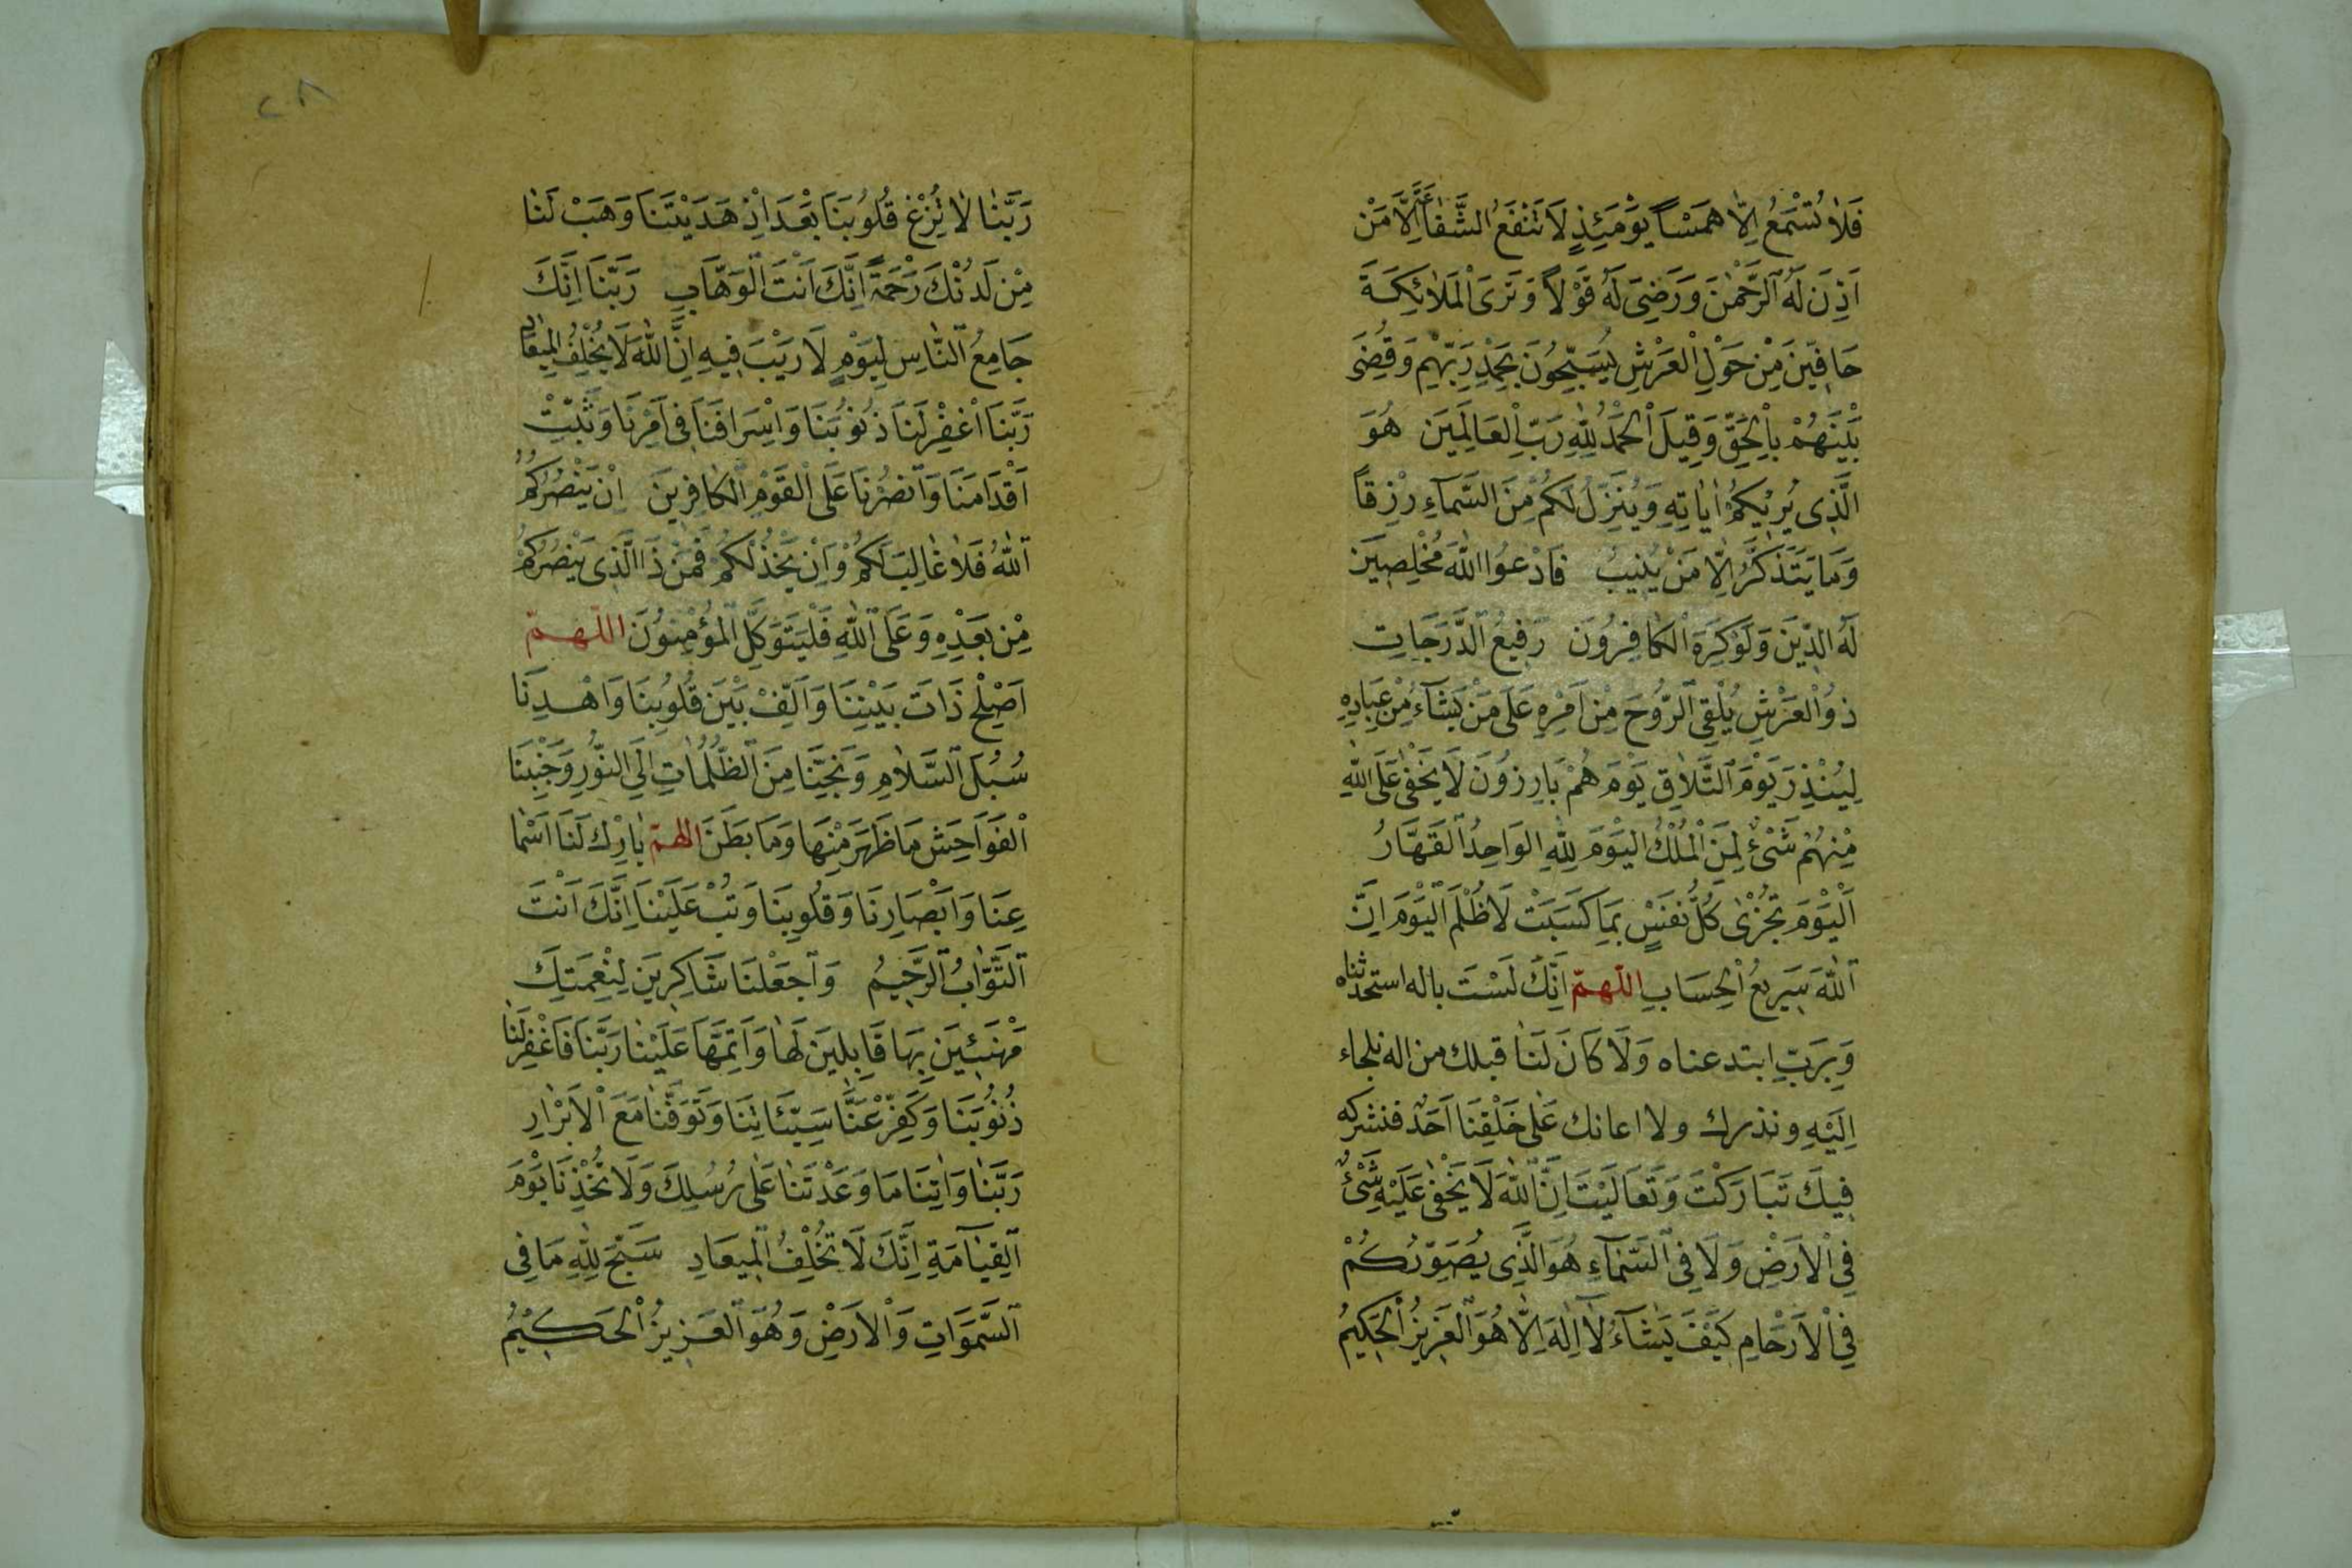 فَلَا تُسْمَعُ اِلَّا هَمْسًا يَوْمَئِذٍ لَا تَنْفَعُ الشَّفَاعَةُ اِلَّا مَنْ
اَذِنَ لَهُ الرَّحْمٰنَ وَرَضِىَ لَهُ قَوْلًا وَتَرَى الْمَلَائِكَةَ
حَافِّينَ مِنْ حَوْلِ الْعَرْشِ يُسَبِّحُونَ بِحَمْدِ رَبِّهِمْ وَقُضِىَ
بَيْنَهُمْ بِالْحَقِّ وَقِيلَ الْحَمْدُ لِلّٰهِ رَبِّ الْعَالَمِينَ هُوَ
الَّذِى يُرِيكُمْ اٰيَاتِهِ وَيُنَزِّلُ لَكُمْ مِنَ السَّمَآءِ رِزْقًا
وَمَا يَتَذَكَّرُ اِلَّا مَنْ يُنِيبُ فَادْعُوا اللّٰهَ مُخْلِصِينَ
لَهُ الدِّينَ وَلَوْ كَرِهَ الْكَافِرُونَ رَفِيعُ الدَّرَجَاتِ
ذُو الْعَرْشِ يُلْقِى الرُّوحَ مِنْ اَمْرِهِ عَلَى مَنْ يَشَآءُ مِنْ عِبَادِهِ
لِيُنْذِرَ يَوْمَ التَّلَاقِ يَوْمَ هُمْ بَارِزُونَ لَا يَخْفٰى عَلَى اللّٰهِ
مِنْهُمْ شَىْءٌ لِمَنِ الْمُلْكُ الْيَوْمَ لِلّٰهِ الْوَاحِدُ الْقَهَّارُ
اَلْيَوْمَ تُجْزٰى كُلُّ نَفْسٍ بِمَا كَسَبَتْ لَا ظُلْمَ الْيَوْمَ اِنَّ
اللّٰهَ سَرِيعُ الْحِسَابِ اللّٰهمّ اِنَّكَ لَسْتَ باله استحدثناه
وَبِرَبِّ ابتدعناه وَلَا كَانَ لَنَا قبلك من اله نلجاء
اِلَيْهِ ونذرك ولا اعانك عَلٰى خَلْقِنَا اَحَدٌ فنشركه
فِيكَ تَبَارَكْتَ وَتَعَالَيْتَ اِنَّ اللّٰهَ لَا يَخْفٰى عَلَيْهِ شَىْءٌ
فِى الْاَرْضِ وَلَا فِى السَّمَآءِ هُوَ الَّذِى يُصَوِّرُكُمْ
فِى الْاَرْحَامِ كَيْفَ يَشَآءُ لَآ اِلٰهَ اِلَّا هُوَ الْعَزِيزُ الْحَكِيمُ
٢٨
رَبَّنَا لَا تُزِغْ قُلُوبَنَا بَعْدَ اِذْ هَدَيْتَنَا وَهَبْ لَنَا
مِنْ لَدُنْكَ رَحْمَةً اِنَّكَ اَنْتَ الْوَهَّابِ رَبَّنَا اِنَّكَ
جَامِعُ النَّاسِ لِيَوْمٍ لَا رَيْبَ فِيهِ اِنَّ اللّٰهَ لَا يُخْلِفُ الْمِيعَادَ
رَبَّنَا اغْفِرْ لَنَا ذُنُوبَنَا وَاِسْرَافَنَا فِى اَمْرِنَا وَثَبِّتْ
اَقْدَامَنَا وَانْصُرْنَا عَلَى الْقَوْمِ الْكَافِرِينَ اِنْ يَنْصُرْكُمُ
اللّٰهُ فَلَا غَالِبَ لَكُمْ وَاِنْ يَخْذُلْكُمْ فَمَنْ ذَا الَّذِى يَنْصُرُكُمْ
مِنْ بَعْدِهِ وَعَلَى اللّٰهِ فَلْيَتَوَكَّلِ الْمُؤْمِنُونَ اللّٰهمّ
اَصْلِحْ ذَاتَ بَيْنِنَا وَاَلِّفْ بَيْنَ قُلُوبِنَا وَاهْدِنَا
سُبُلَ السَّلَامِ وَنَجِّنَا مِنَ الظُّلُمَاتِ اِلَى النُّورِ وَجَنِّبْنَا
الْفَوَاحِشَ مَا ظَهَرَ مِنْهَا وَمَا بَطَنَ اللهمّ بَارِكْ لَنَا اَسْمَا
عِنَا وَاَبْصَارِنَا وَقُلُوبِنَا وَتُبْ عَلَيْنَا اِنَّكَ اَنْتَ
التَّوَّابُ الرَّحِيمُ وَاجْعَلْنَا شَاكِرِينَ لِنِعْمَتِكَ
مُهَنَّئِينَ بِهَا قَابِلِينَ لَهَا وَاَتِمَّهَا عَلَيْنَا رَبَّنَا فَاغْفِرْلَنَا
ذُنُوبَنَا وَكَفِّرْ عَنَّا سَيِّئَاتِنَا وَتَوَفَّنَا مَعَ الْاَبْرَارِ
رَبَّنَا وَاٰتِنَا مَا وَعَدْتَنَا عَلٰى رُسُلِكَ وَلَا تُخْذِنَا يَوْمَ
الْقِيَامَةِ اِنَّكَ لَا تُخْلِفُ الْمِيعَادِ سَبَّحَ لِلّٰهِ مَا فِى
السَّمَوَاتِ وَالْاَرْضِ وَهُوَ الْعَزِيزُ الْحَكِيمُ